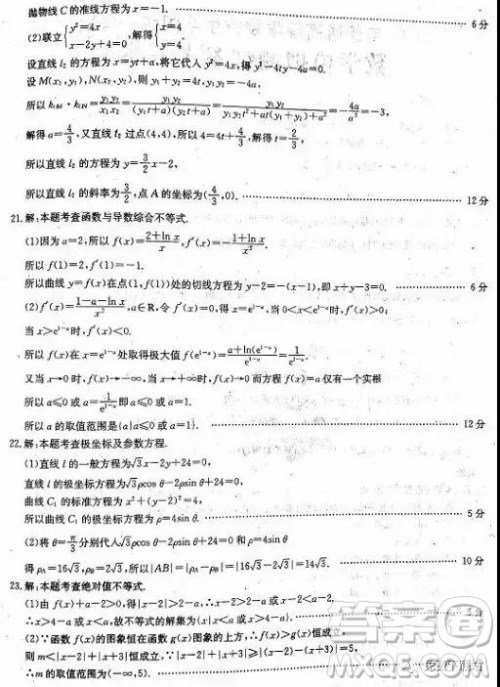 抛物线 C 的准线方程为 x=-1. 6分
(2)联立{y²=4x, x-2y+4=0, 解得{x=4, y=4.
设直线 l₂ 的方程为 x=yt+a, 将它代入 y²=4x, 得 y²-4ty-4a=0.
设 M(x₁,y₁), N(x₂,y₂), 则 y₁+y₂=4t, y₁y₂=-4a,
解得 a=4/3, 又直线 l₂ 过点(4,4), 所以 4=4t+4/3, 解得 t=2/3,
所以直线 l₂ 的方程为 y=3/2x-2,
所以直线 l₂ 的斜率为3/2, 点 A 的坐标为(4/3,0). 12分
21.解:本题考查函数与导数综合不等式.
(1)因为 a=2, 所以 f(x)=(2+ln x)/x, f′(x)=-(1+ln x)/x².
所以 f(1)=2, f′(1)=-1.
所以曲线 y=f(x)在点(1,f(1))处的切线方程为 y-2=-(x-1), 即 x+y-3=0. 6分
(2)f′(x)=(1-a-ln x)/x², a∈R, 令 f′(x)=0, 得 x=e¹⁻ᵃ, 当 0<x<e¹⁻ᵃ时, f′(x)>0;
当 x>e¹⁻ᵃ时, f′(x)<0.
所以 f(x)在 x=e¹⁻ᵃ处取得极大值 f(e¹⁻ᵃ)=(a+ln(e¹⁻ᵃ))/e¹⁻ᵃ=1/e¹⁻ᵃ.
又当 x→0 时, f(x)→-∞, 当 x→+∞时, f(x)→0 而方程 f(x)=a 仅有一个实根
所以 a≤0 或 a=1/e¹⁻ᵃ即 a≤0 或 a=1.
所以 a 的取值范围是{a|a≤0 或 a=1}. 12分
22.解:本题考查极坐标及参数方程.
(1)直线 l 的一般方程为√3x-2y+24=0,
直线 l 的极坐标方程为√3ρcos θ-2ρsin θ+24=0,
曲线 C₁ 的标准方程为 x²+(y-2)²=4,
所以曲线 C₁ 的极坐标方程为 ρ=4sin θ. 5分
(2)将 θ=π/3分别代入√3ρcos θ-2ρsin θ+24=0 和 ρ=4sin θ.
得 ρA=16√3, ρB=2√3, 所以|AB|=|ρA-ρB|=|16√3-2√3|=14√3. 10分
23.解:本题考查绝对值不等式.
(1)由 f(x)+a-2>0, 得|x-2|>2-a, ∴x-2>2-a 或 x-2<a-2.
∴x>4-a 或 x<a, 故不等式的解集为{x|x<a 或 x>4-a}.
(2)∵函数 f(x)的图象恒在函数 g(x)图象的上方, ∴f(x)>g(x)恒成立,
则 m<|x-2|+|x+3|恒成立, ∵|x-2|+|x+3|≥|(x-2)-(x+3)|=5,
∴m 的取值范围为(-∞,5).